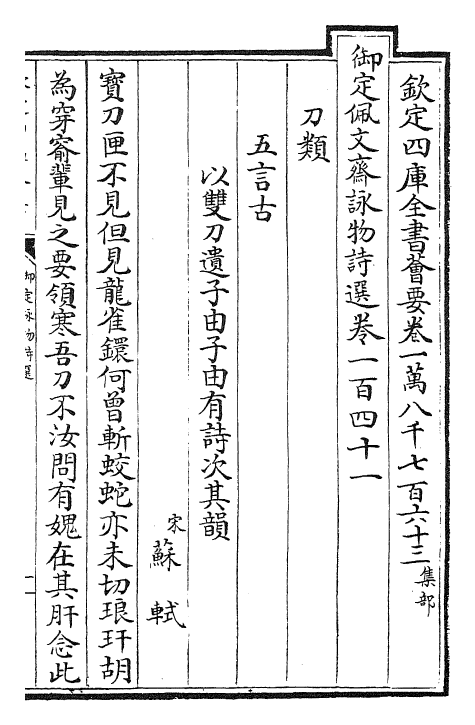 欽定四庫全書薈要卷一萬八千七百六十三 集部
御定佩文齋詠物詩選卷一百四十一
刀類
五言古
以雙刀遺子由子由有詩次其韻
宋 蘇軾
寶刀匣不見但見龍雀鐶何曾斬蛟蛇亦未切琅玕胡
為穿窬輩見之要領寒吾刀不汝問有媿在其肝念此
御定詠物詩選
一